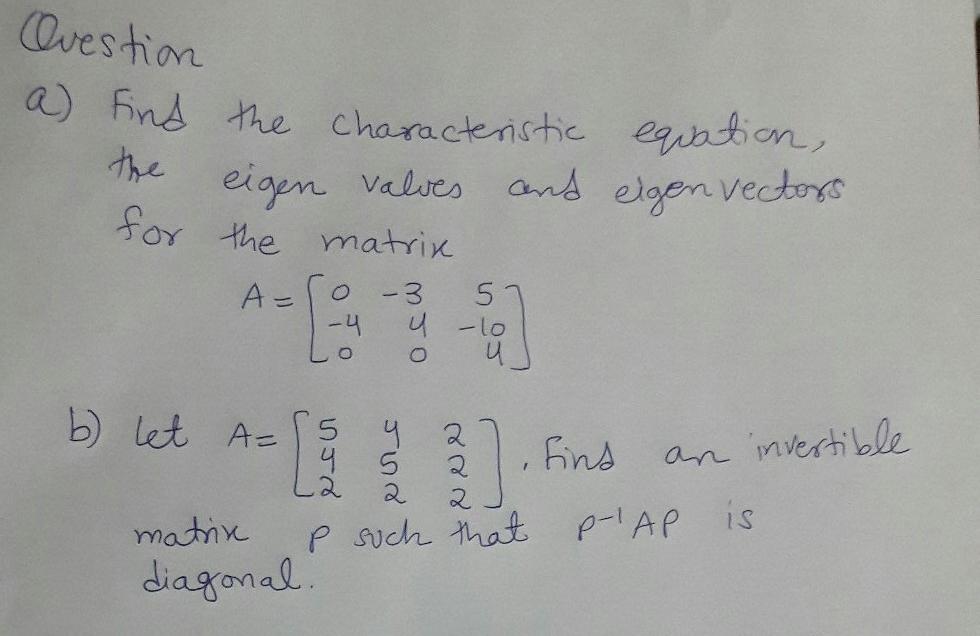 Question
a) Find the characteristic equation,
the eigen values and eigen vectors
for the matrix
A = [ 0 -3 5
-4 4 -10
0 0 4 ]
b) let A = [ 5 4 2
4 5 2
2 2 2 ] . Find an invertible
matrix P such that P⁻¹AP is
diagonal.